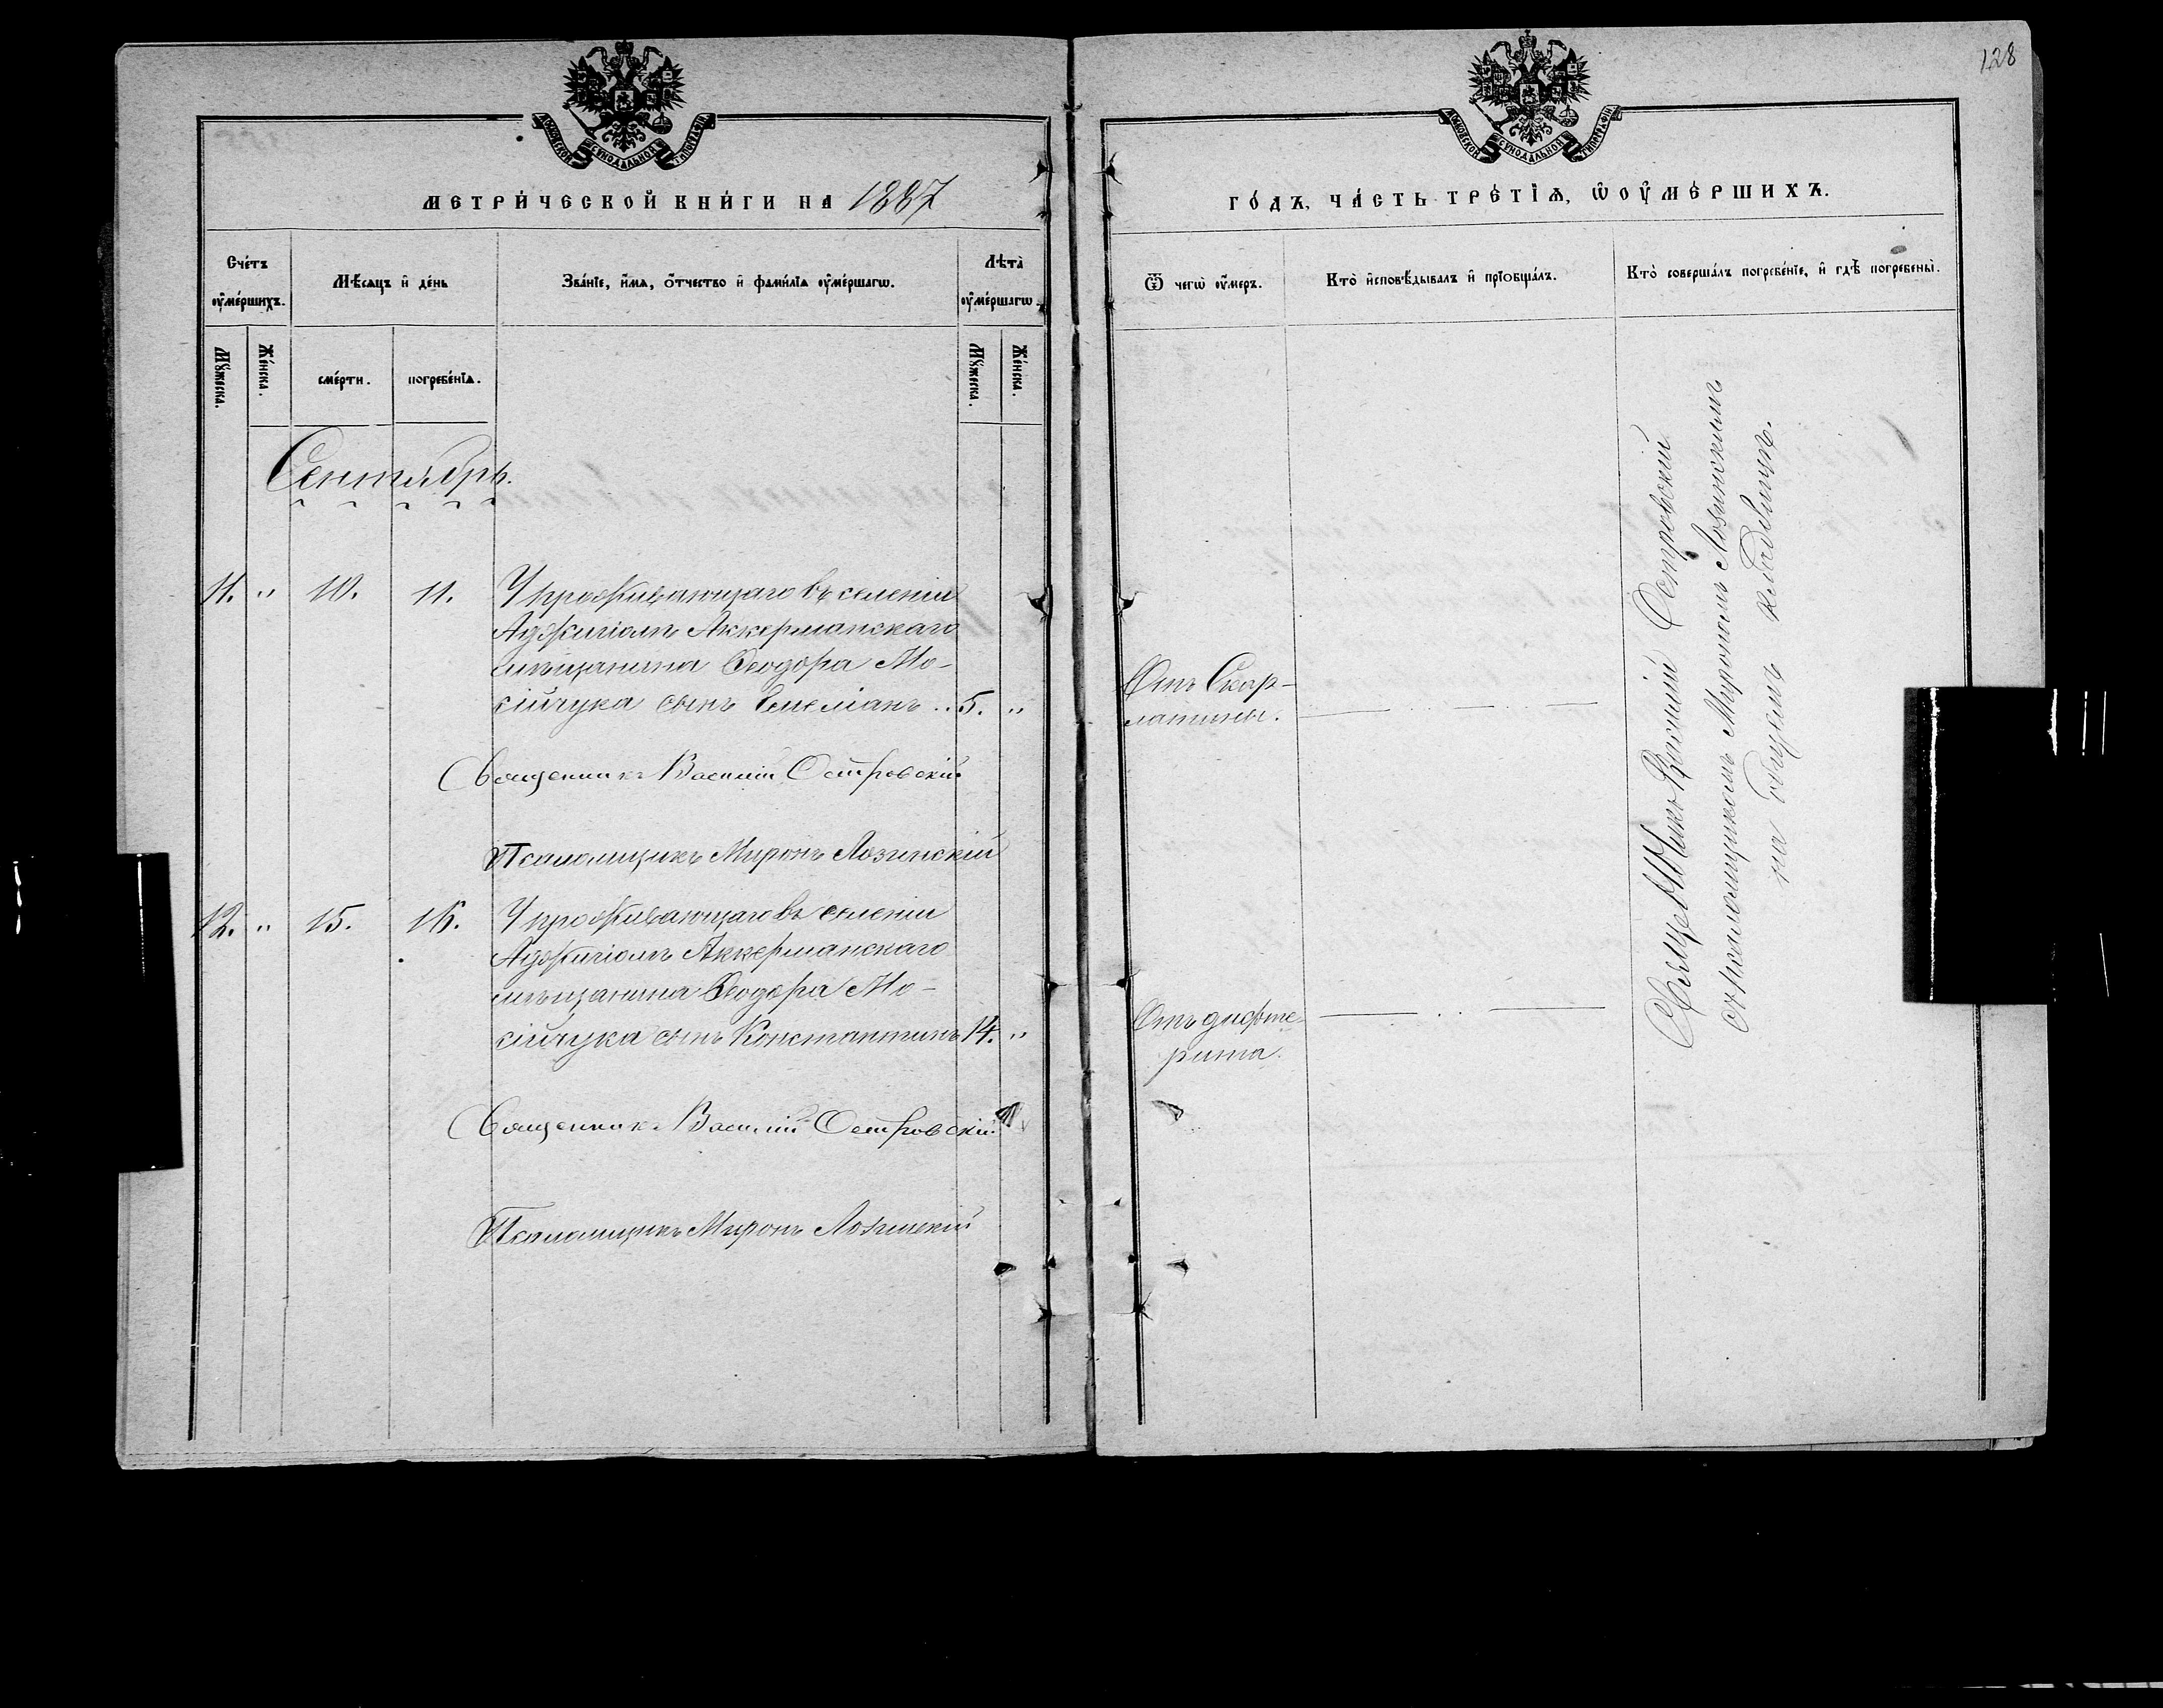 128
МОСКОВСКОЙ СѴНОДАЛЬНОЙ ТИПОГРАФІИ
МЕТРИ́ЧЕСКОЙ КНИ́ГИ НА 1887
Сче́тъ ᲂу҆ме́ршихъ.
Мѣ́сяцъ и҆ де́нь
Зва́нїе, и҆́мѧ, ѻ҆́тчество и҆ фами́лїа ᲂу҆ме́ршагѡ.
Лѣта̀ ᲂу҆ме́ршагѡ.
Мꙋ́жеска.
Же́нска.
сме́рти.
погребе́нїѧ.
Мꙋ́жеска.
Же́нска.
Сентябрь.
11. " 10. 11. У проживающаго въ селеніи
Аджигіолъ Аккерманскаго
мѣщанина Ѳеодора Мо-
сійчука сынъ Емеліанъ .. 5. "
Священникъ Василій Островскій
Псаломщикъ Миронъ Лозинскій
12. " 15. 16. У проживающаго въ селеніи
Аджигіолъ Аккерманскаго
мѣщанина Ѳеодора Мо-
сійчука сынъ Константинъ 14. "
Священникъ Василій Островскій
Псаломщикъ Миронъ Лозинскій
МОСКОВСКОЙ СѴНОДАЛЬНОЙ ТИПОГРАФІИ
ГО́ДЪ, ЧА́СТЬ ТРЕ́ТЇѦ, Ѡ ОУ҆МЕ́РШИХЪ.
Ѿ чегѡ̀ ᲂу҆́меръ.
Кто̀ и҆сповѣ́дывалъ и҆ прїѡбща́лъ.
Кто̀ соверша́лъ погребе́нїе, и҆ гдѣ̀ погребены̀.
Отъ Скар-
латины.
Отъ дифте-
рита
Священникъ Василій Островскій
съ Псаломщикомъ Мирономъ Лозинскимъ
на общемъ кладбищѣ.